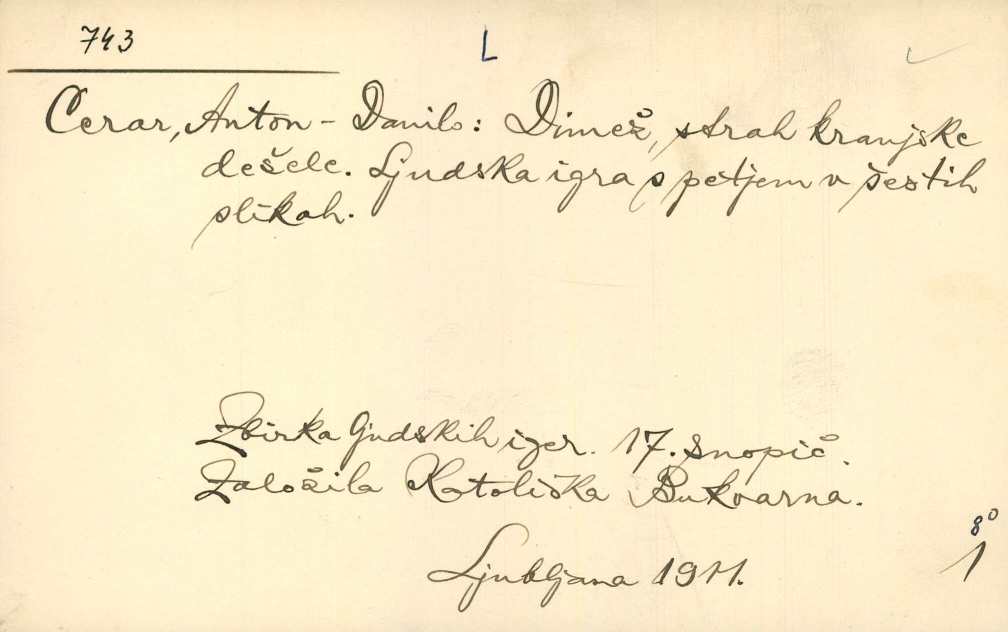 743
L
Cerar, Anton - Danilo: Dimež, strah kranjske
dešele. Ljudska igra s petjem v šestih
slikah.
Zbirka ljudskih iger. 17. snopič.
Založila Katoliška Bukvarna.
Ljubljana 1911.
8°
1